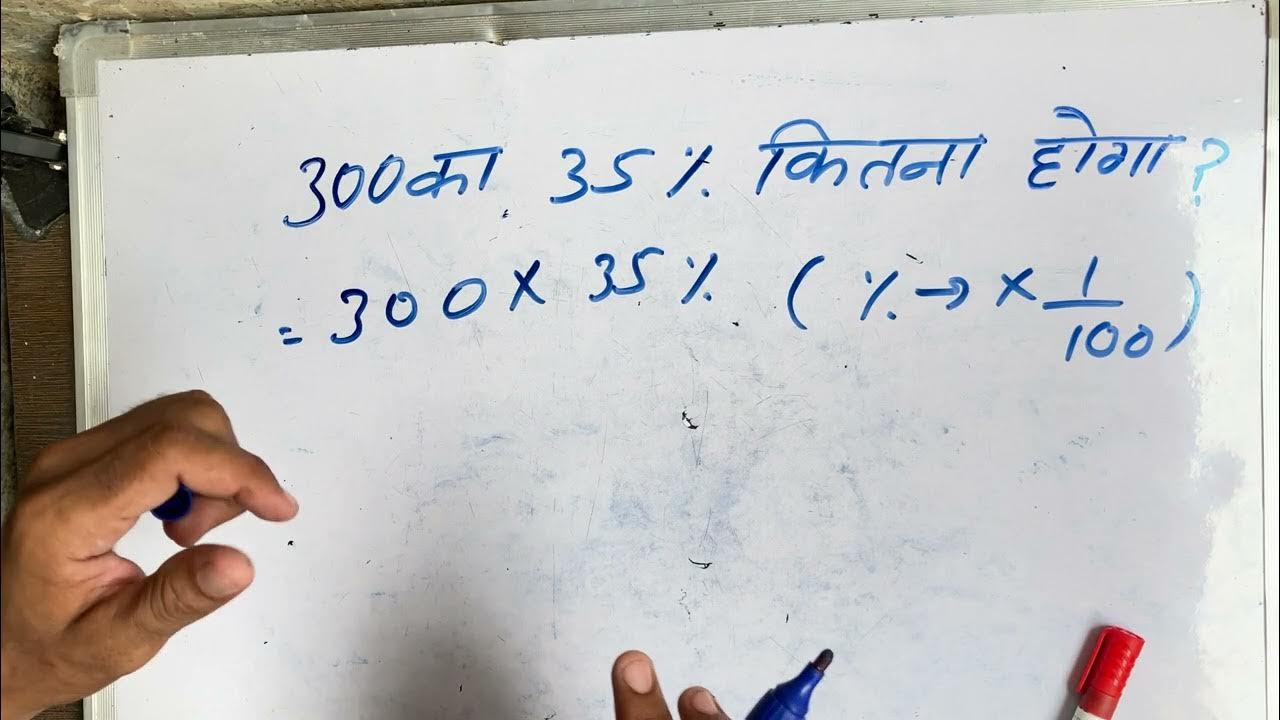 300 का 35% कितना होगा ?
= 300 × 35% ( % → × 1/100 )